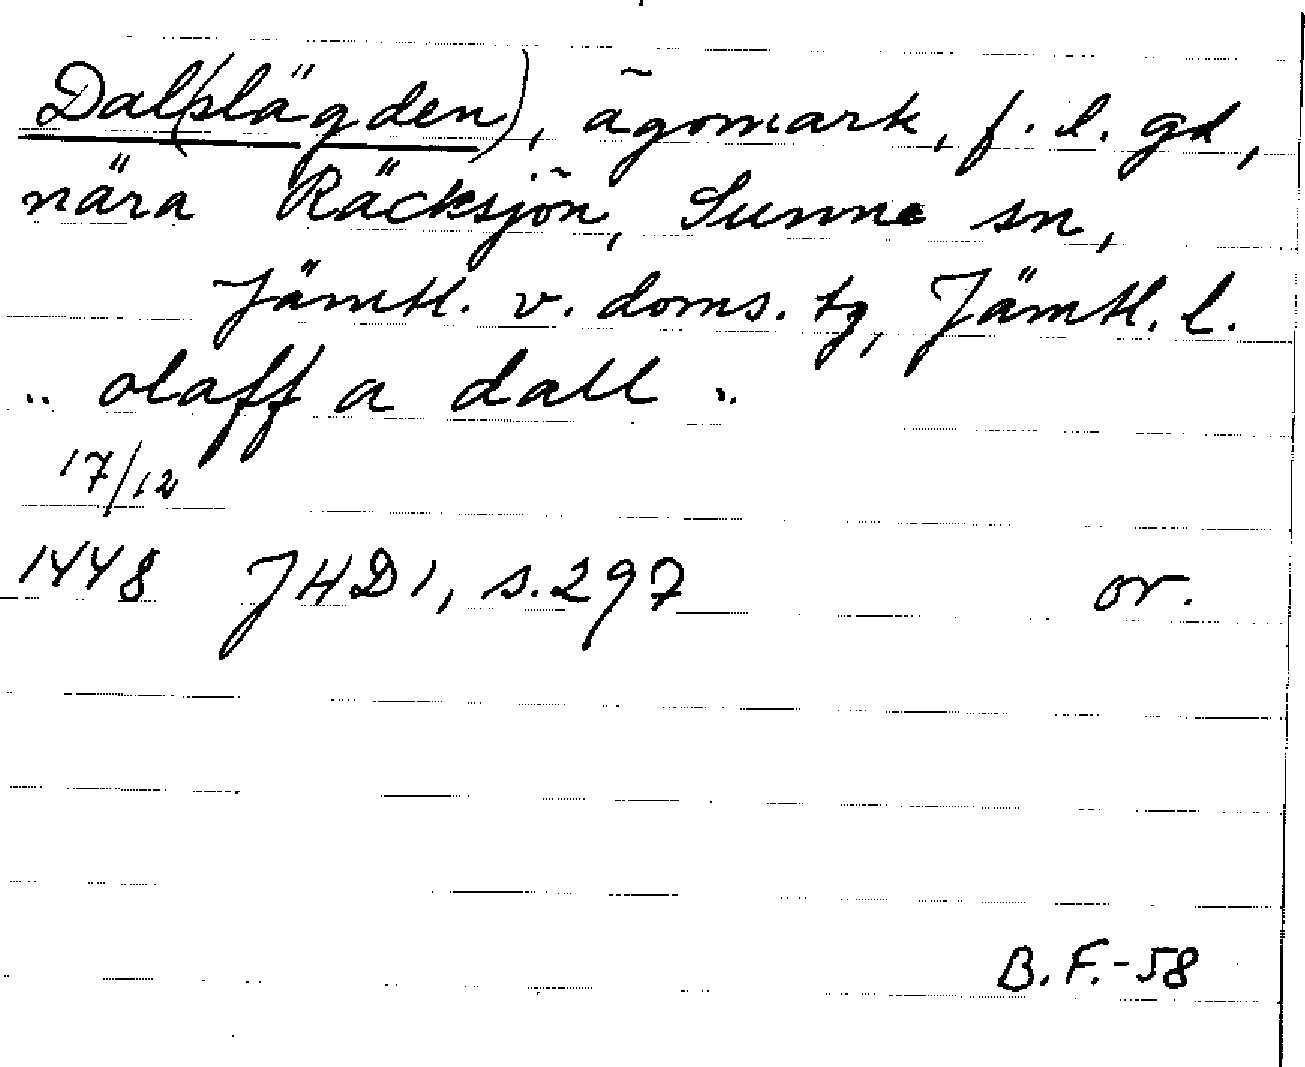 Dal(slägden), ägomark, f. l. gd,
nära Räcksjön, Sunne sn,
Jämtl. v. doms. tg, Jämtl. l.
"olaff a dall"
17/12
1448 JHD 1, s. 297 or.
B.F.-58